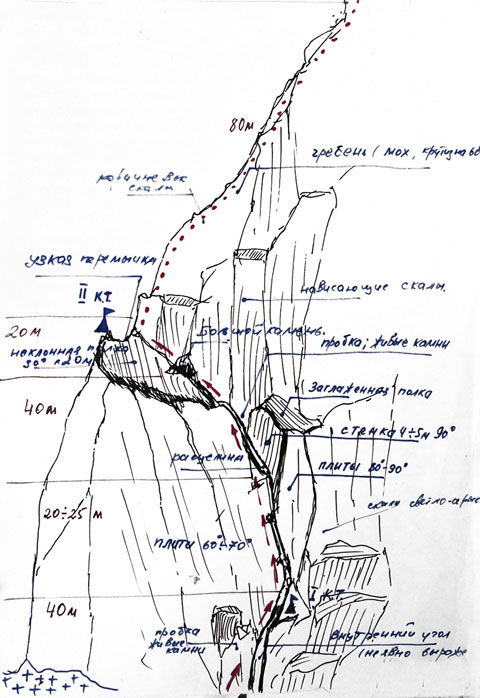 80м
гребень (мох,
коричневые
скалы
узкая перемычка
II к.т.
нависающие скалы.
20м
Большой камень.
пробка; живые камни
наклонная полка
30° ÷20м
Заглаженная полка
40м
стенка 4÷5м 90°
расщелина
плиты 80°-90°
20÷25 м
скалы светло-серые
плиты 60°÷70°
40м
I к.т.
пробка
живые
камни
внутренний угол
(неявно выраже